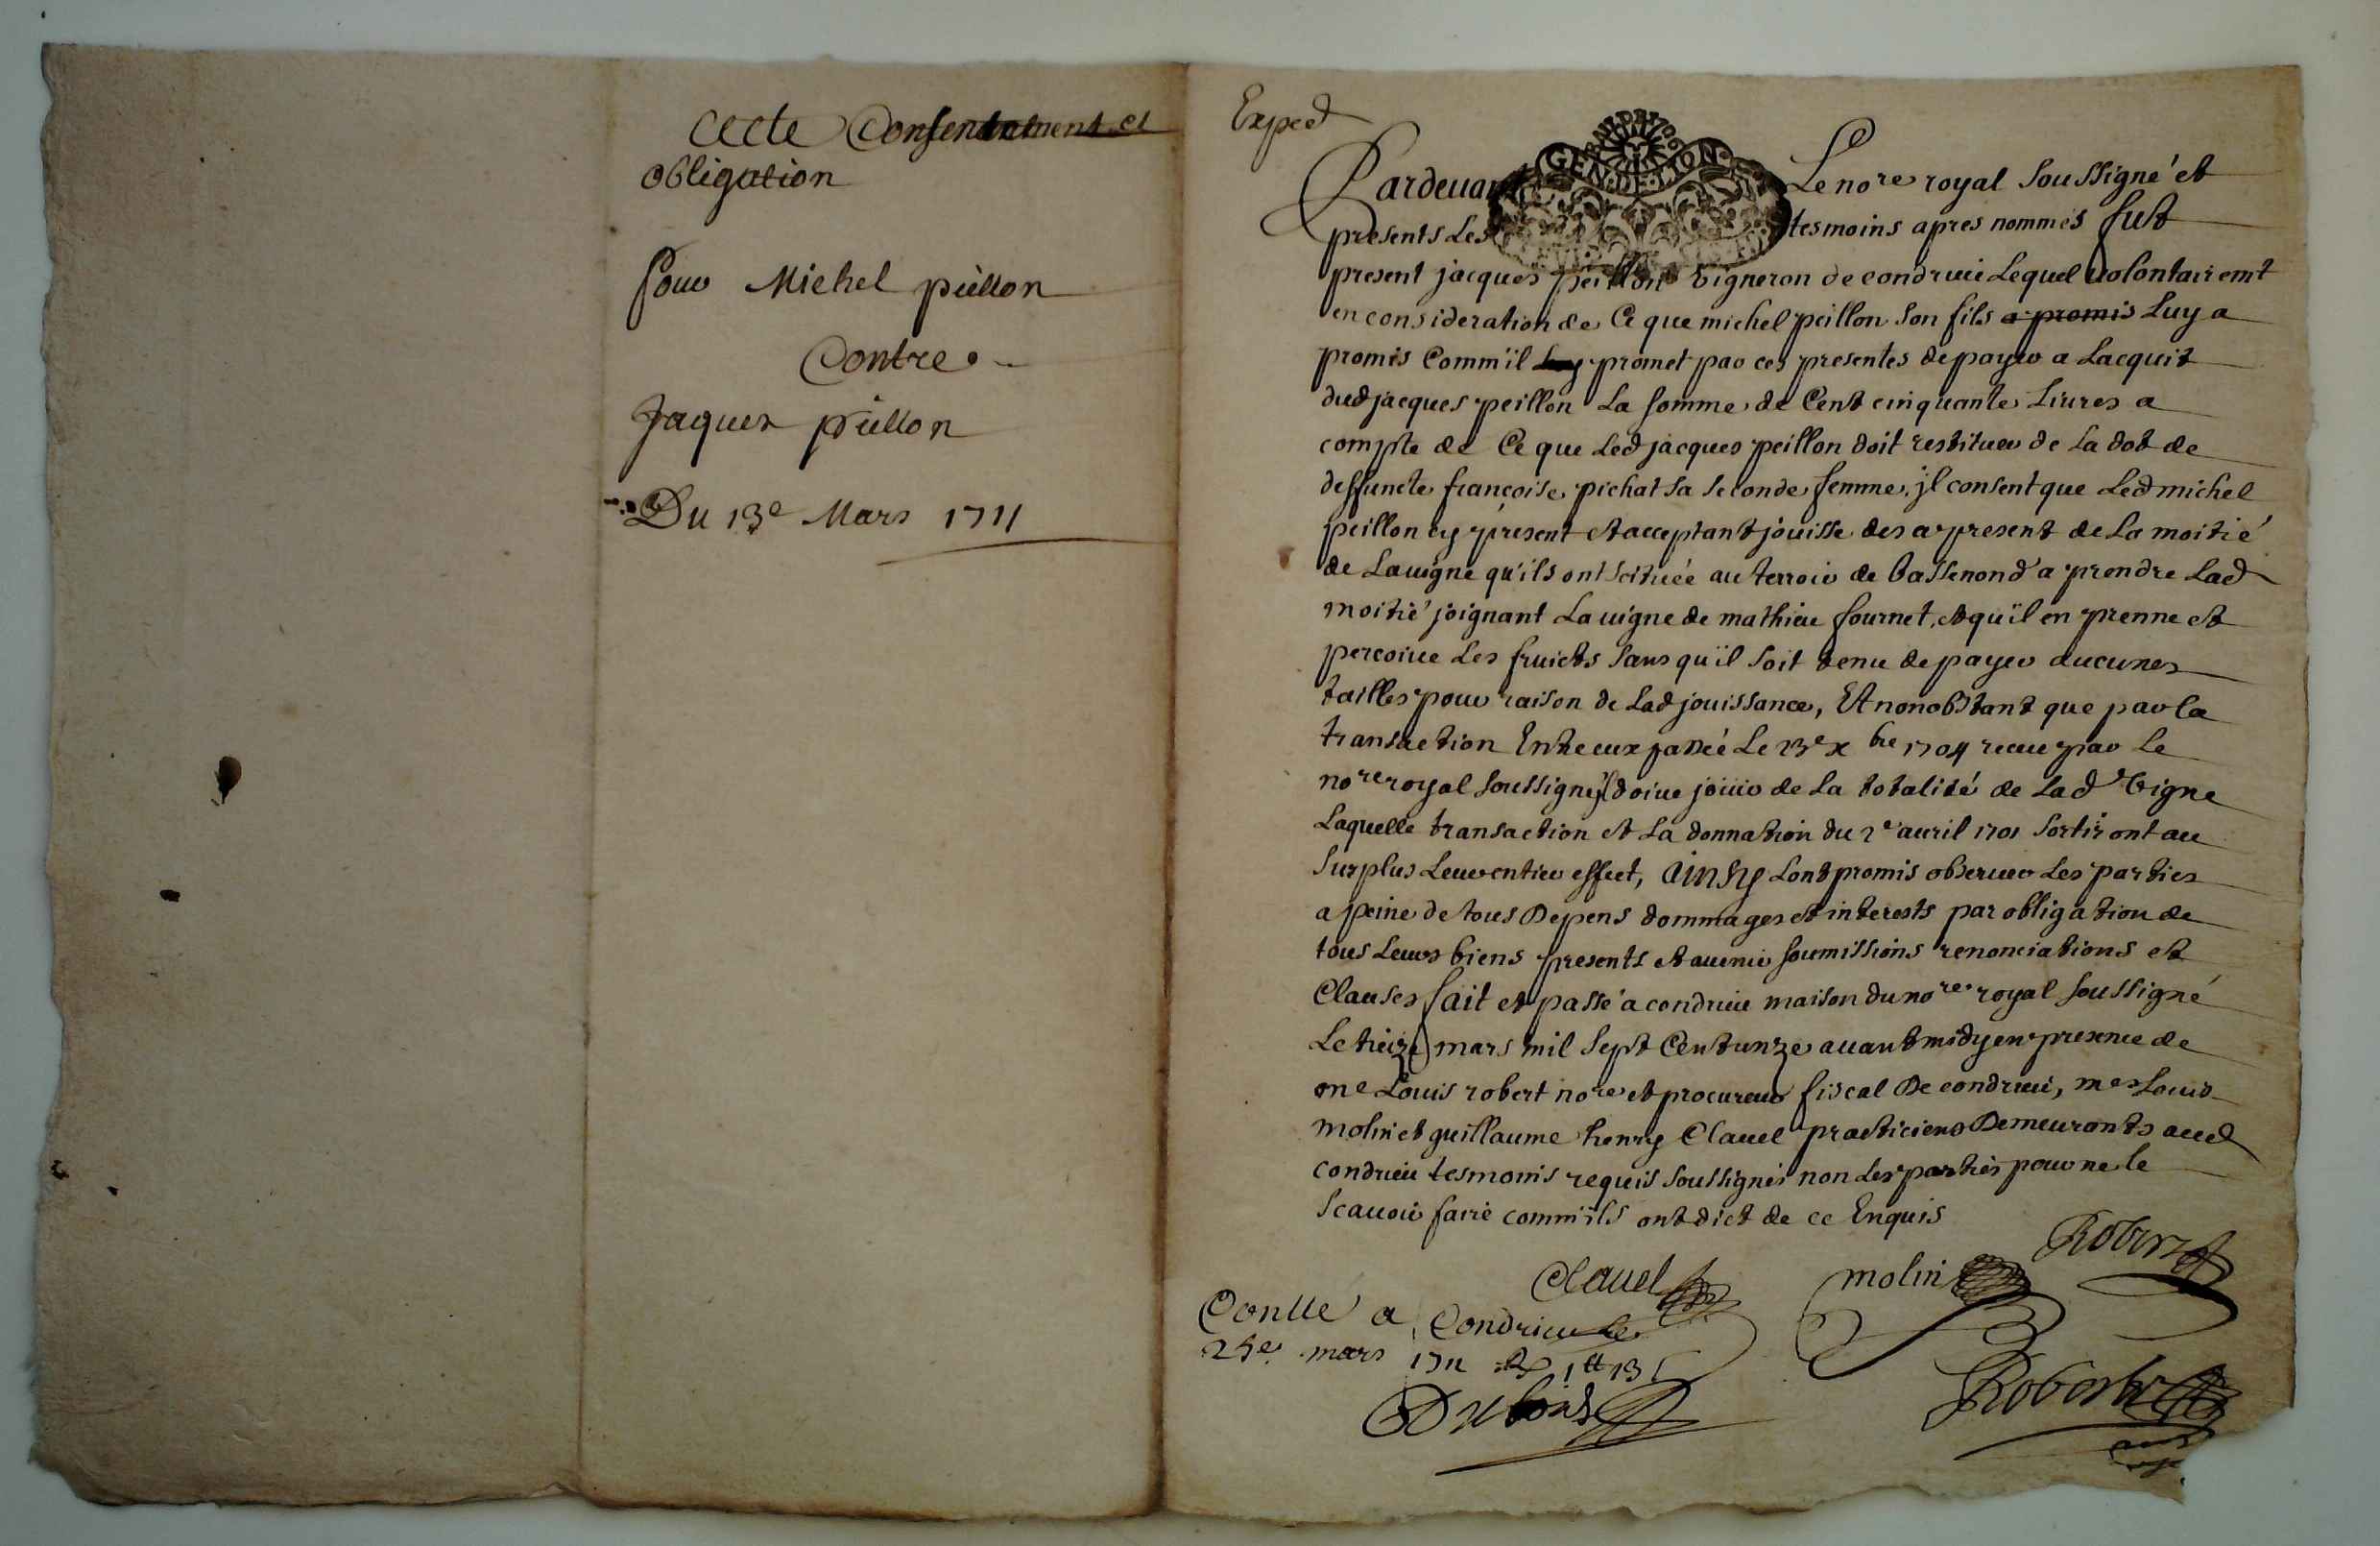 Acte Consentement et
obligation
pour Michel peillon
Contre
Jaques peillon
Du 13e Mars 1711
Exped
GEN·DE·LION
Pardeuant Le nore royal soussigné et
presents Les tesmoins apres nommés fut
present jacques peillon vigneron de condrieu Lequel volontairemt
en consideration de Ce que michel peillon son fils a promis Luy a
promis Comm'il luy promet par ces presentes de payer a Lacquit
dud jacques peillon La somme de Cent cinquante Liures a
compte de Ce que Led jacques peillon doit restituer de La dot de
deffuncte francoise pichat sa seconde femme, jl consent que Led michel
peillon cy present et acceptant jouisse des a present de La moitié
de La uigne qu'ils ont scituée au terroir de bassenond a prendre Lad
moitié joignant La uigne de mathieu fournet, et qu'il en prenne et
percoiue Les fruicts sans qu'il soit tenu de payer aucunes
tailles pour raison de Lad jouissance, Et nonobstant que par la
transaction Entre eux passée Le 23e xbre 1704 receue par Le
nore royal soussigné doiue jouir de La totalité de Lad vigne
Laquelle transaction et La donnation du 2e auril 1701 sortiront au
surplus Leur entier effect, ainsy Lont promis obseruer Les parties
a peine de tous Depens dommages et interests par obligation de
tous Leurs biens presents et auenir soumissions renonciations et
Clauses fait et passé a condrieu maison du nore royal soussigné
Le treize mars mil sept Cent unze auant midy en presence de
me Louis robert nore et procureur fiscal De condrieu, mes Louis
molin et guillaume henry Clauel practiciens Demeurants aud
condrieu tesmoins requis soussignés non Les parties pour ne le
scauoir faire comm'ils ont dict de ce Enquis
Robert
Clauel molin
Conlle a Condrieu le
25e mars 1711 R 1tt 13s
Robert